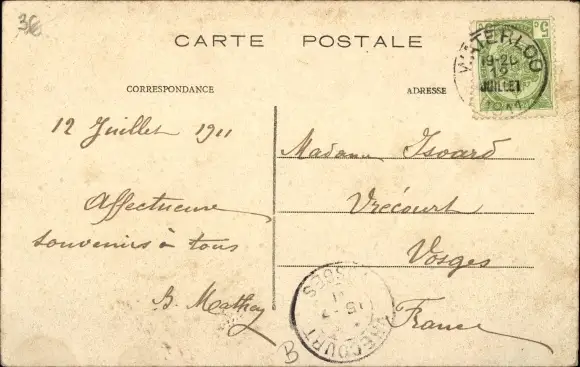 3€
CARTE POSTALE
CORRESPONDANCE
ADRESSE
5
WATERLOO
19-20
12
JUILLET
1911
12 Juillet 1911
Affectueux
souvenirs à tous
B. Mathey
Madame Isoard
Vrécourt
Vosges
France
VRECOURT
VOSGES
15 -7
11
B